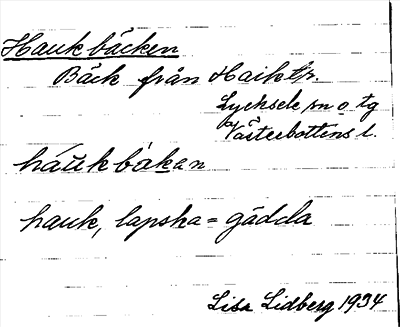 Haukbäcken
Bäck från Haiktr.
Lycksele sn o tg
Västerbottens l.
háukbäkan
hauk, lapska = gädda
Lisa Lidberg 1934